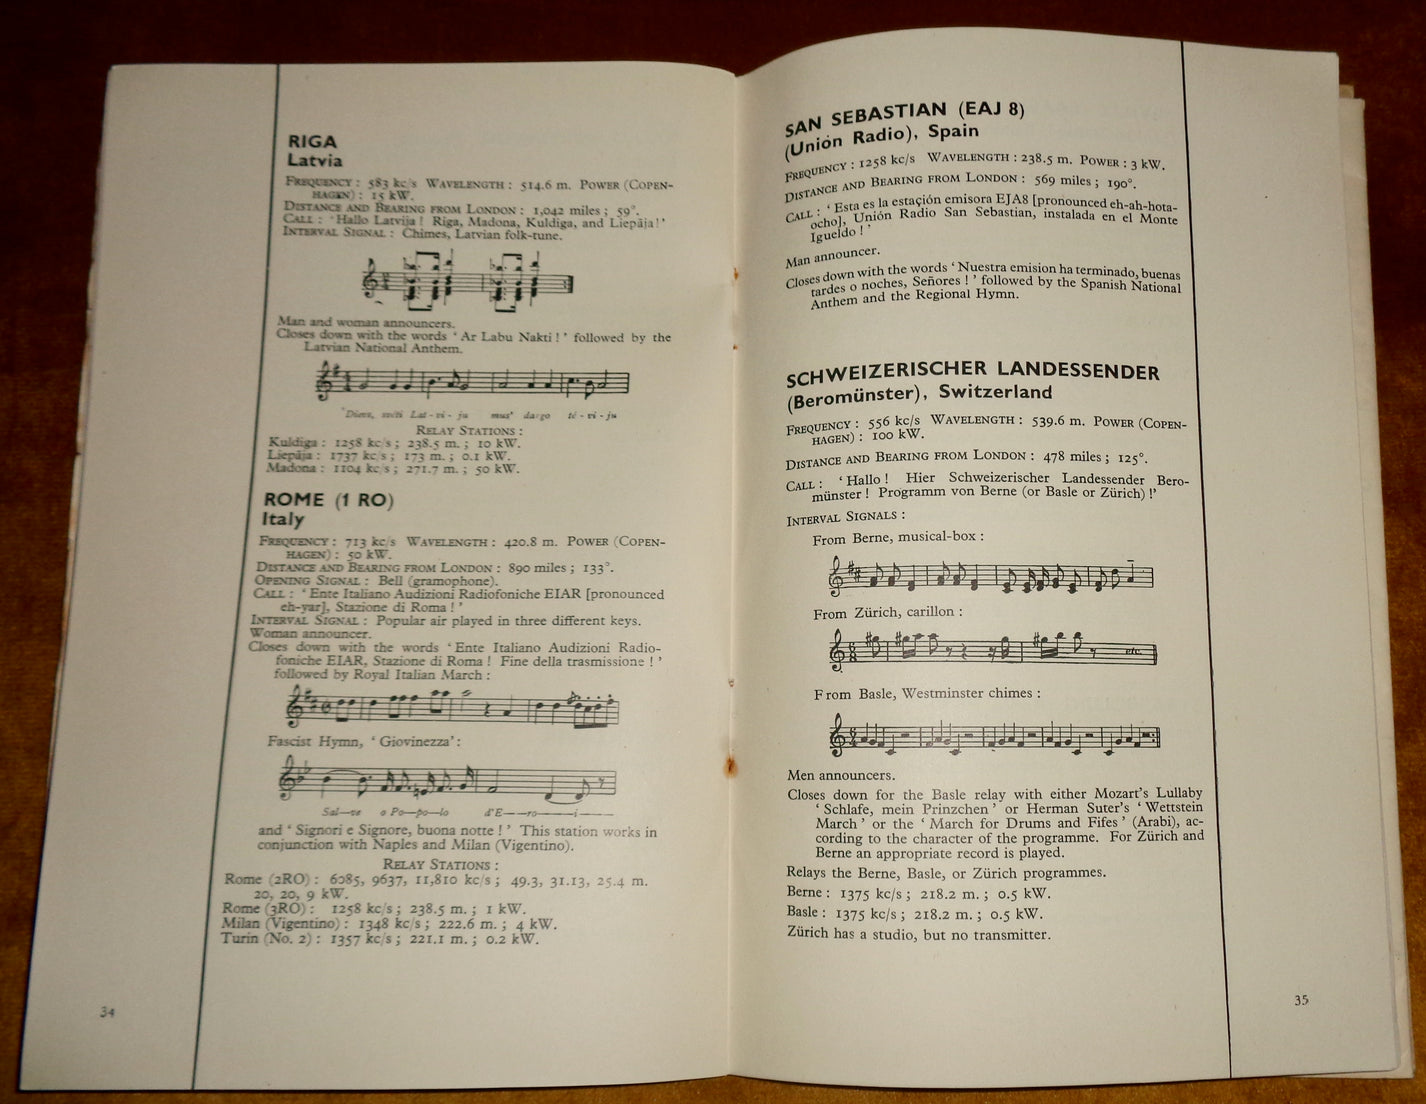 RIGA
Latvia
FREQUENCY : 583 kc/s WAVELENGTH : 514.6 m. POWER (COPEN-
HAGEN) : 15 kW.
DISTANCE AND BEARING FROM LONDON : 1,042 miles ; 59°.
CALL : ‘Hallo Latvija ! Riga, Madona, Kuldiga, and Liepāja !’
INTERVAL SIGNAL : Chimes, Latvian folk-tune.
Man and woman announcers.
Closes down with the words ‘ Ar Labu Nakti ! ’ followed by the
Latvian National Anthem.
‘Dievs, svēti Lat - vi - ju mus’ dargo tē - vi - ju
RELAY STATIONS :
Kuldiga : 1258 kc/s ; 238.5 m. ; 10 kW.
Liepāja : 1737 kc/s ; 173 m. ; 0.1 kW.
Madona : 1104 kc/s ; 271.7 m. ; 50 kW.
ROME (1 RO)
Italy
FREQUENCY : 713 kc/s WAVELENGTH : 420.8 m. POWER (COPEN-
HAGEN) : 50 kW.
DISTANCE AND BEARING FROM LONDON : 890 miles ; 133°.
OPENING SIGNAL : Bell (gramophone).
CALL : ‘ Ente Italiano Audizioni Radiofoniche EIAR [pronounced
eh-yar], Stazione di Roma ! ’
INTERVAL SIGNAL : Popular air played in three different keys.
Woman announcer.
Closes down with the words ‘ Ente Italiano Audizioni Radio-
foniche EIAR, Stazione di Roma ! Fine della trasmissione ! ’
followed by Royal Italian March :
Fascist Hymn, ‘ Giovinezza’ :
Sal—ve o Po—po—lo d’E——ro———i———
and ‘ Signori e Signore, buona notte ! ’ This station works in
conjunction with Naples and Milan (Vigentino).
RELAY STATIONS :
Rome (2RO) : 6085, 9637, 11,810 kc/s ; 49.3, 31.13, 25.4 m.
20, 20, 9 kW.
Rome (3RO) : 1258 kc/s ; 238.5 m. ; 1 kW.
Milan (Vigentino) : 1348 kc/s ; 222.6 m. ; 4 kW.
Turin (No. 2) : 1357 kc/s ; 221.1 m. ; 0.2 kW.
34
SAN SEBASTIAN (EAJ 8)
(Unión Radio), Spain
FREQUENCY : 1258 kc/s WAVELENGTH : 238.5 m. POWER : 3 kW.
DISTANCE AND BEARING FROM LONDON : 569 miles ; 190°.
CALL : ‘ Esta es la estación emisora EJA8 [pronounced eh-ah-hota-
ocho], Unión Radio San Sebastian, instalada en el Monte
Igueldo ! ’
Man announcer.
Closes down with the words ‘ Nuestra emision ha terminado, buenas
tardes o noches, Señores ! ’ followed by the Spanish National
Anthem and the Regional Hymn.
SCHWEIZERISCHER LANDESSENDER
(Beromünster), Switzerland
FREQUENCY : 556 kc/s WAVELENGTH : 539.6 m. POWER (COPEN-
HAGEN) : 100 kW.
DISTANCE AND BEARING FROM LONDON : 478 miles ; 125°.
CALL : ‘ Hallo ! Hier Schweizerischer Landessender Bero-
münster ! Programm von Berne (or Basle or Zürich) !’
INTERVAL SIGNALS :
From Berne, musical-box :
From Zürich, carillon :
etc.
From Basle, Westminster chimes :
Men announcers.
Closes down for the Basle relay with either Mozart’s Lullaby
‘ Schlafe, mein Prinzchen ’ or Herman Suter’s ‘ Wettstein
March ’ or the ‘ March for Drums and Fifes ’ (Arabi), ac-
cording to the character of the programme. For Zürich and
Berne an appropriate record is played.
Relays the Berne, Basle, or Zürich programmes.
Berne : 1375 kc/s ; 218.2 m. ; 0.5 kW.
Basle : 1375 kc/s ; 218.2 m. ; 0.5 kW.
Zürich has a studio, but no transmitter.
35